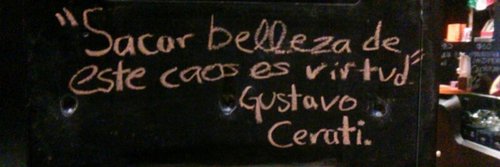 "Sacar belleza de
este caos es virtud"
Gustavo
Cerati.